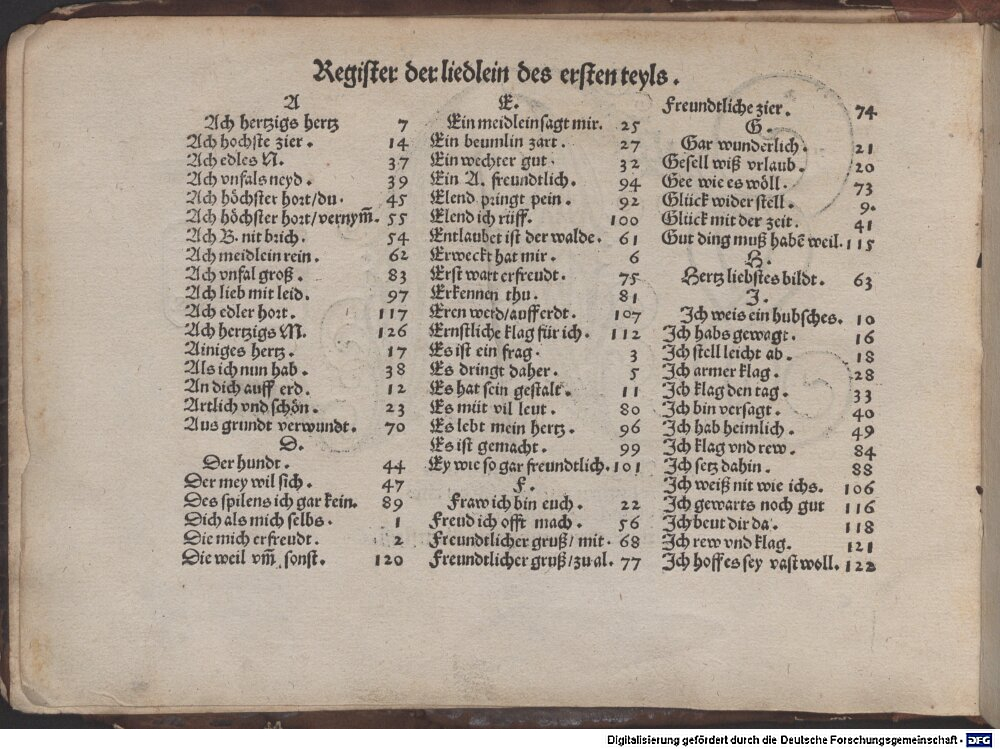 Register der liedlein des ersten teyls.
A
Ach hertzigs hertz 7
Ach hochste zier. 14
Ach edles N. 37
Ach vnfals neyd. 39
Ach höchster hort/du. 45
Ach höchster hort/vernym̅. 55
Ach B. nit brich. 54
Ach meidlein rein. 62
Ach vnfal groß. 83
Ach lieb mit leid. 97
Ach edler hort. 117
Ach hertzigs M. 126
Ainiges hertz. 17
Als ich nun hab. 38
An dich auff erd. 12
Artlich vnd schön. 23
Aus grundt verwundt. 70
D.
Der hundt. 44
Der mey wil sich. 47
Des spilens ich gar kein. 89
Dich als mich selbs. 1
Die mich erfreudt. 2
Die weil vm̅ sonst. 120
E.
Ein meidlein sagt mir. 25
Ein beumlin zart. 27
Ein wechter gut. 32
Ein A. freundtlich. 94
Elend pringt pein. 92
Elend ich rüff. 100
Entlaubet ist der walde. 61
Erweckt hat mir. 6
Erst wart erfreudt. 75
Erkennen thu. 81
Eren werd/auff erdt. 107
Ernstliche klag für ich. 112
Es ist ein frag. 3
Es dringt daher. 5
Es hat sein gestalt. 11
Es müt vil leut. 80
Es lebt mein hertz. 96
Es ist gemacht. 99
Ey wie so gar freundtlich. 101
F.
Fraw ich bin euch. 22
Freud ich offt mach. 56
Freundtlicher gruß/mit. 68
Freundtlicher gruß/zu al. 77
Freundtliche zier. 74
G.
Gar wunderlich. 21
Gesell wiß vrlaub. 20
Gee wie es wöll. 73
Glück widerstell. 9.
Glück mit der zeit. 41
Gut ding muß habē weil. 115
H.
Hertz liebstes bildt. 63
I.
Ich weis ein hubsches. 10
Ich habs gewagt. 16
Ich stell leicht ab. 18
Ich armer klag. 28
Ich klag den tag. 33
Ich bin versagt. 40
Ich hab heimlich. 49
Ich klag vnd rew. 84
Ich setz dahin. 88
Ich weiß nit wie ichs. 106
Ich gewarts noch gut 116
Ich beut dir da. 118
Ich rew vnd klag. 121
Ich hoff es sey vast woll. 122
Digitalisierung gefördert durch die Deutsche Forschungsgemeinschaft - DFG